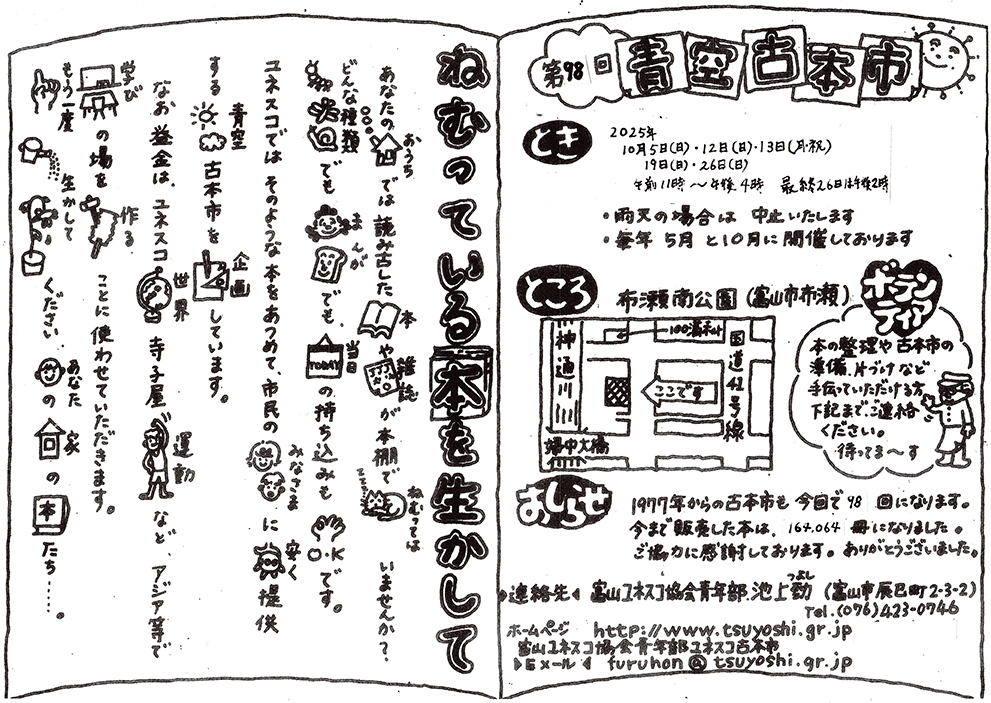 第98回 青空古本市
とき
2025年
10月5日(日)・12日(日)・13日(月・祝)
19日(日)・26日(日)
午前11時～午後4時 最終26日は午後2時
・雨天の場合は 中止いたします
・毎年 5月 と10月に 開催しております
ところ
布瀬南公園 (富山市布瀬)
神通川
100満ボルト
国道41号線
ここです
婦中大橋
ボランティア
本の整理や古本市の
準備、片づけなど
手伝っていただける方、
下記までご連絡
ください。
待ってま〜す
おしらせ
1977年からの古本市も 今回で 98 回になります。
今まで販売した本は、164,064 冊になりました。
ご協力に感謝しております。ありがとうございました。
連絡先 富山ユネスコ協会青年部、池上勁 (富山市辰巳町2-3-2)
つよし
Tel.(076)423-0746
ホームページ http://www.tsuyoshi.gr.jp
富山ユネスコ協会青年部ユネスコ古本市
Eメール furuhon@tsuyoshi.gr.jp
ねむっている本を生かして
あなたの おうち では 読み古した 本 や 雑誌 が 本棚で ねむっては いませんか?、
どんな種類 でも まんが でも、当日 の持ち込みも O.K です。
TODAY
ユネスコでは そのような 本を あつめて、市民の みなさま に 安く 提供
する 青空 古本市を 企画 しています。
なお 益金は、ユネスコ 世界 寺子屋 運動 など、アジア等で
学び の場を 作る ことに 使わせていただきます。
もう一度 生かして ください あなた の 家 の 本 たち……。